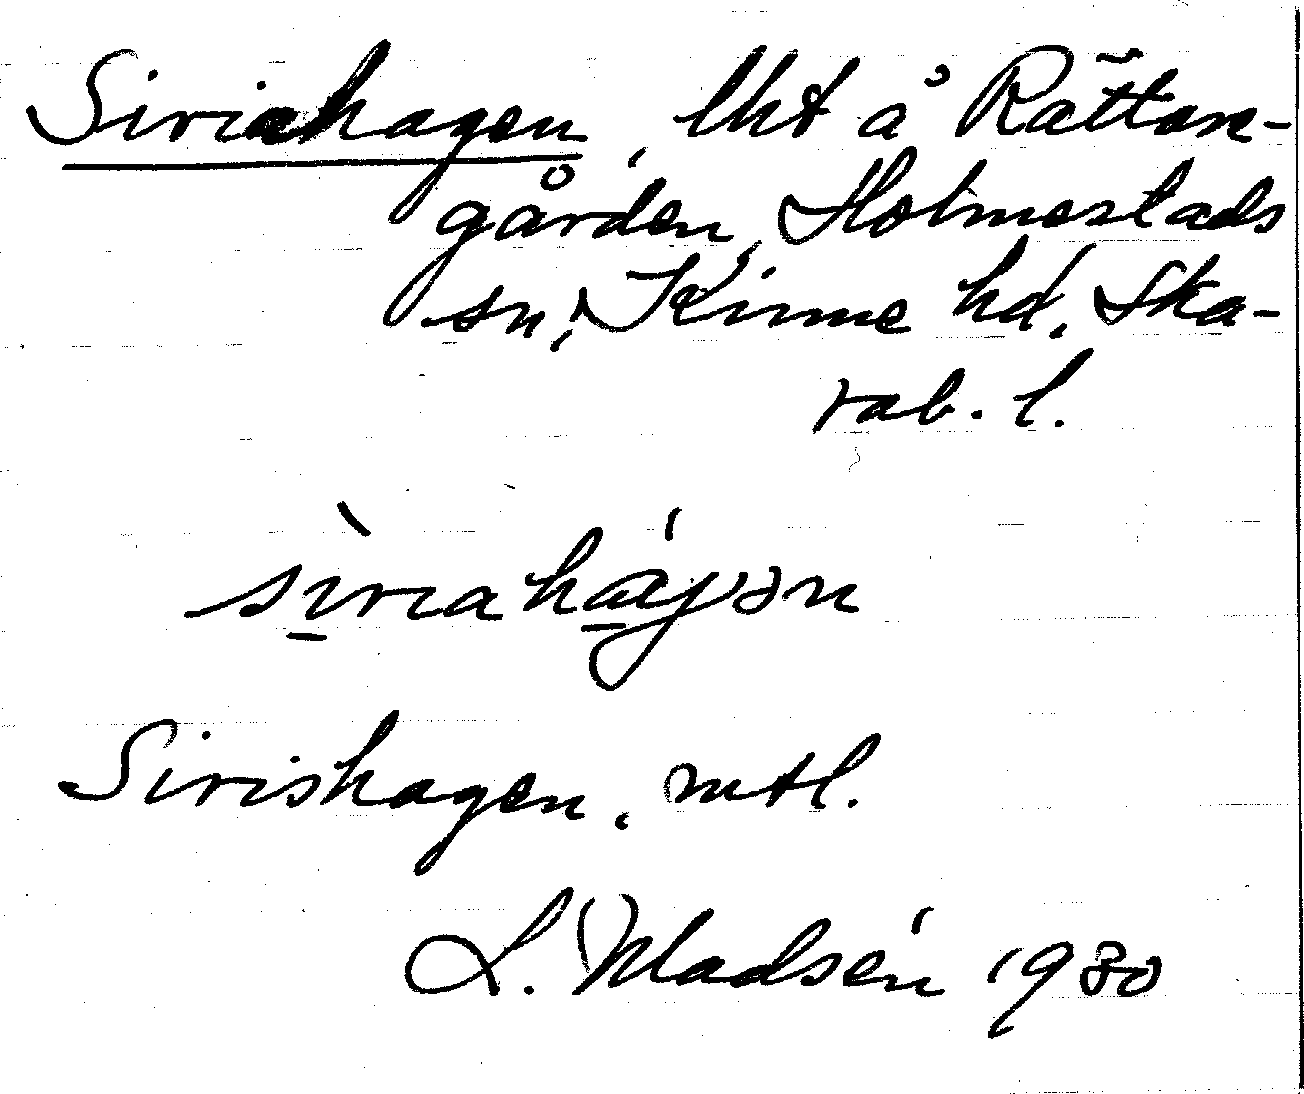 Siriahagen, lht å Rättare-
gården, Holmestads
sn, Kinne hd, Ska-
rab. l.
sìriaháɣən
Sirishagen, mtl.
L. Madsén 1930